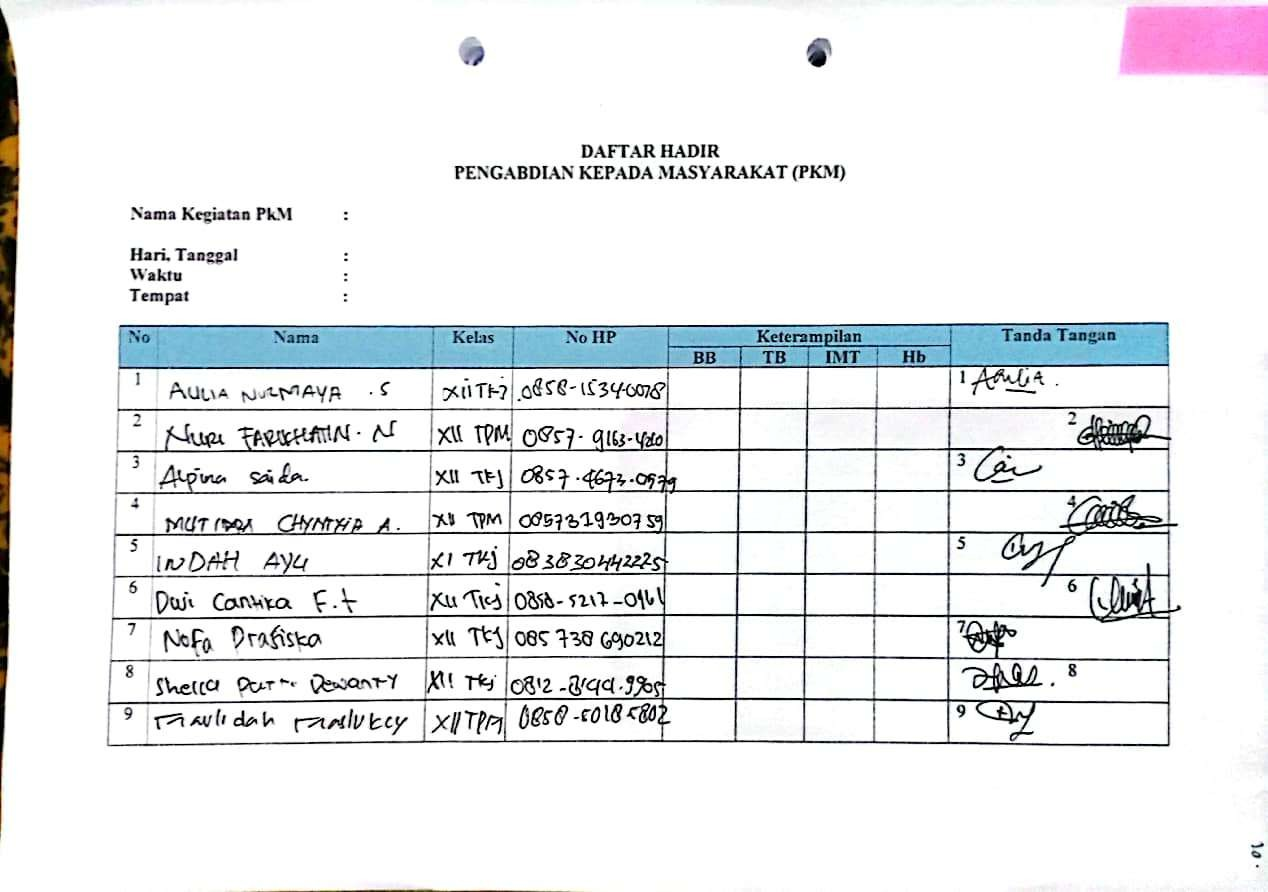 DAFTAR HADIR
PENGABDIAN KEPADA MASYARAKAT (PKM)
Nama Kegiatan PkM :
Hari, Tanggal :
Waktu :
Tempat :
No Nama Kelas No HP Keterampilan Tanda Tangan
BB TB IMT Hb
1 AULIA NURMAYA .S XII TKJ 0858-15340078 1 Aaulia.
2 FARIKHATIN. N XII TPM 0857- 9163- 2
3 Alpina Saida. XII TKJ 0857.4673.0979 3
4 MUTIARA CHYNTHIA A. XII TPM 085731930759 4
5 INDAH AYU XI TKJ 083830442225 5
6 Dwi Cantika F.t XII TKJ 0858-5217-0161 6
7 Nofa Drafiska XII TKJ 085 738 690212 7
8 Putri Dewanty XII TKJ 0812- 8
9 Maulidah XII TPM 0858-50185802 9
10.